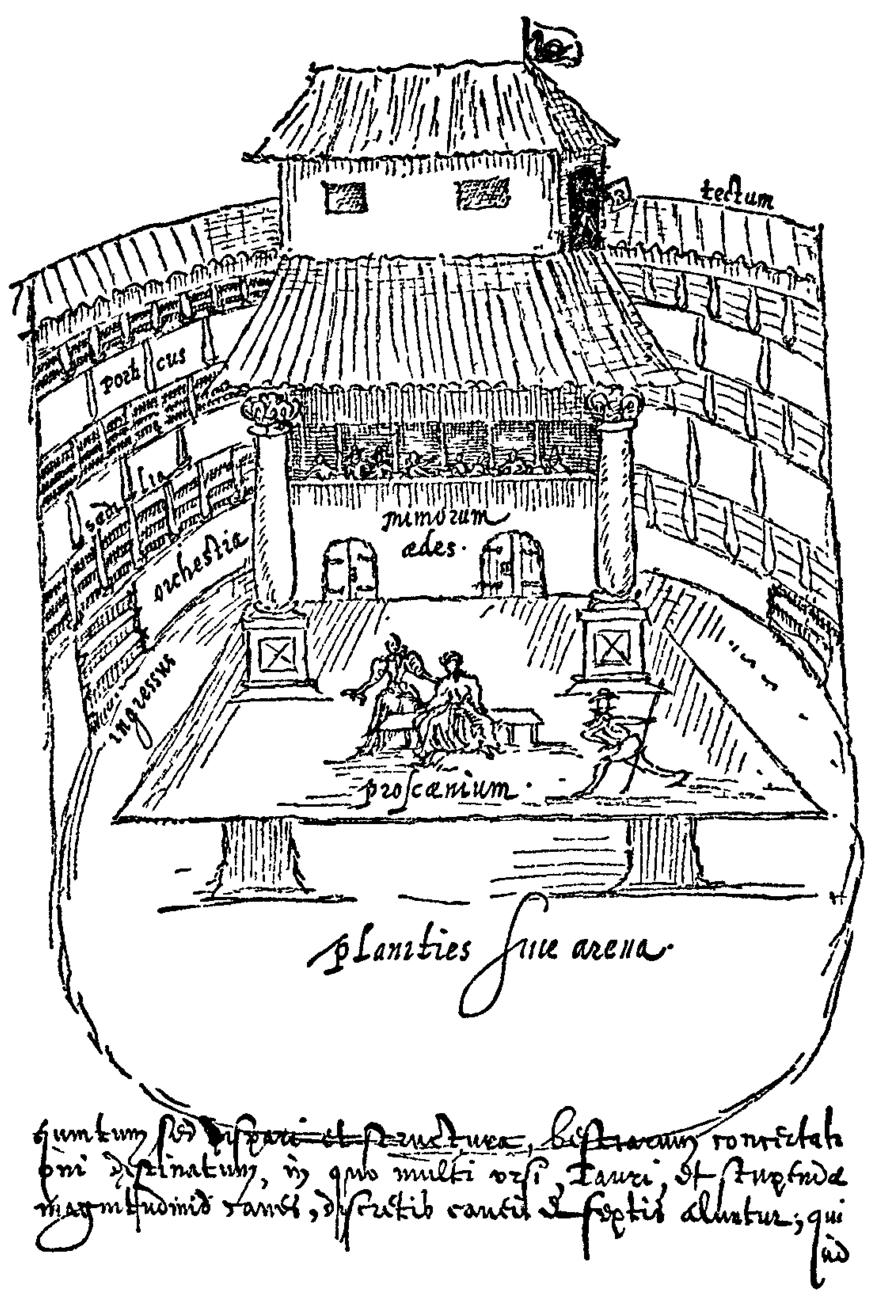 tectum
porticus
sedilia
orchestra
mimorum
ædes.
ingressus
proscænium.
planities siue arena.
quuntum sed dispari et structura, bestiarum concertati
oni destinatum, in quo multi vrsi, Tauri, et stupendæ
magnitudinis canes, discretis caueis et septis aluntur, qui
ad